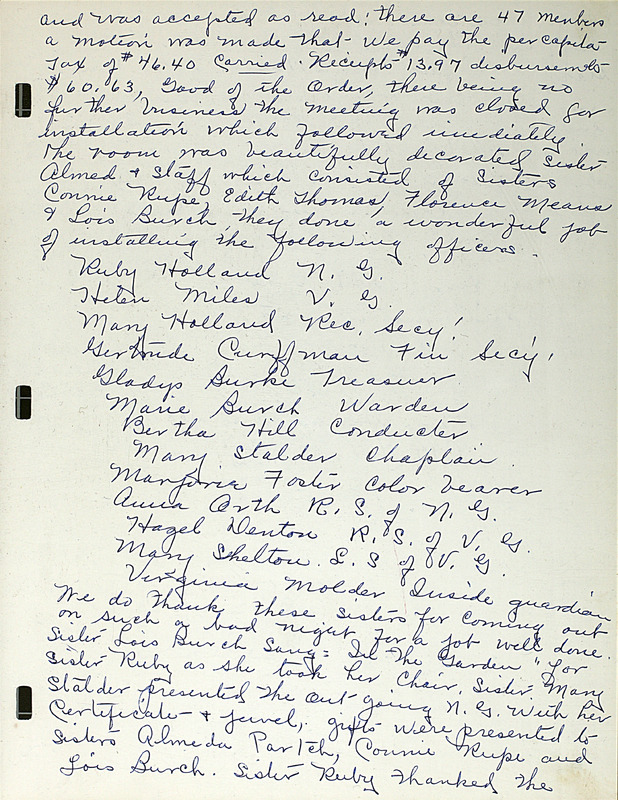 and was accepted as read: there are 47 members
a motion was made that we pay the percapita
Tax of $46.40 Carried. Receipts $13.97 disbursements
$60.63, Good of the Order, there being no
further business the meeting was closed for
installation which followed imediatly.
The room was beautifully decorated Sister
Almed + staff which consisted of Sisters
Connie Rupe, Edith Thomas, Florence Means
& Lois Burch they done a wonderful job
of installing the following officers.
Ruby Holland N. G.
Helen Miles V. G.
Mary Holland Rec. Secy.
Gertrude Curffman Fin Secy.
Gladys Burke Treasurer
Marie Burch Warden
Bertha Hill Conducter
Mary Stalder Chaplain.
Marjorie Foster Color bearer
Anna Orth R. S. of N. G.
Hazel Denton R. S. of V. G.
Mary Shelton L. S of V. G.
Virginia Molder Inside guardian
We do thank these sisters for coming out
on such a bad night for a job well done.
Sister Lois Burch Sang = In The Garden" for
Sister Ruby as she took her Chair. Sister Mary
Stalder presented the out going N. G. With her
Certificate + jewel, gifts were presented to
Sisters Almeda Partch, Connie Rupe and
Lois Burch. Sister Ruby thanked the